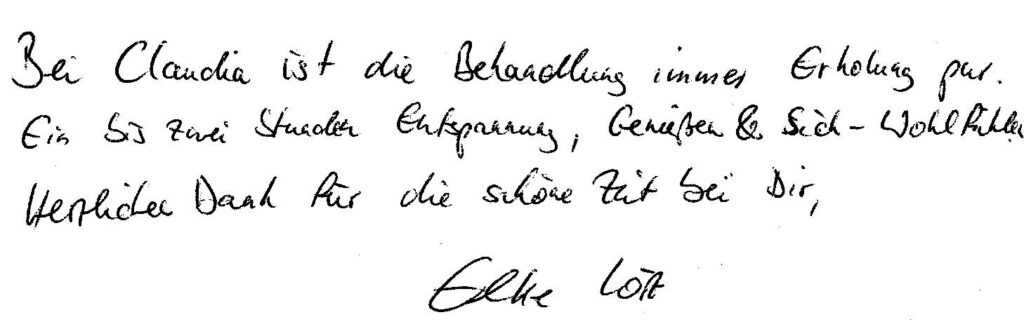 Bei Claudia ist die Behandlung immer Erholung pur.
Ein bis zwei Stunden Entspannung, Genießen & Sich-Wohlfühlen
Herzlichen Dank für die schöne Zeit bei Dir,
Elke